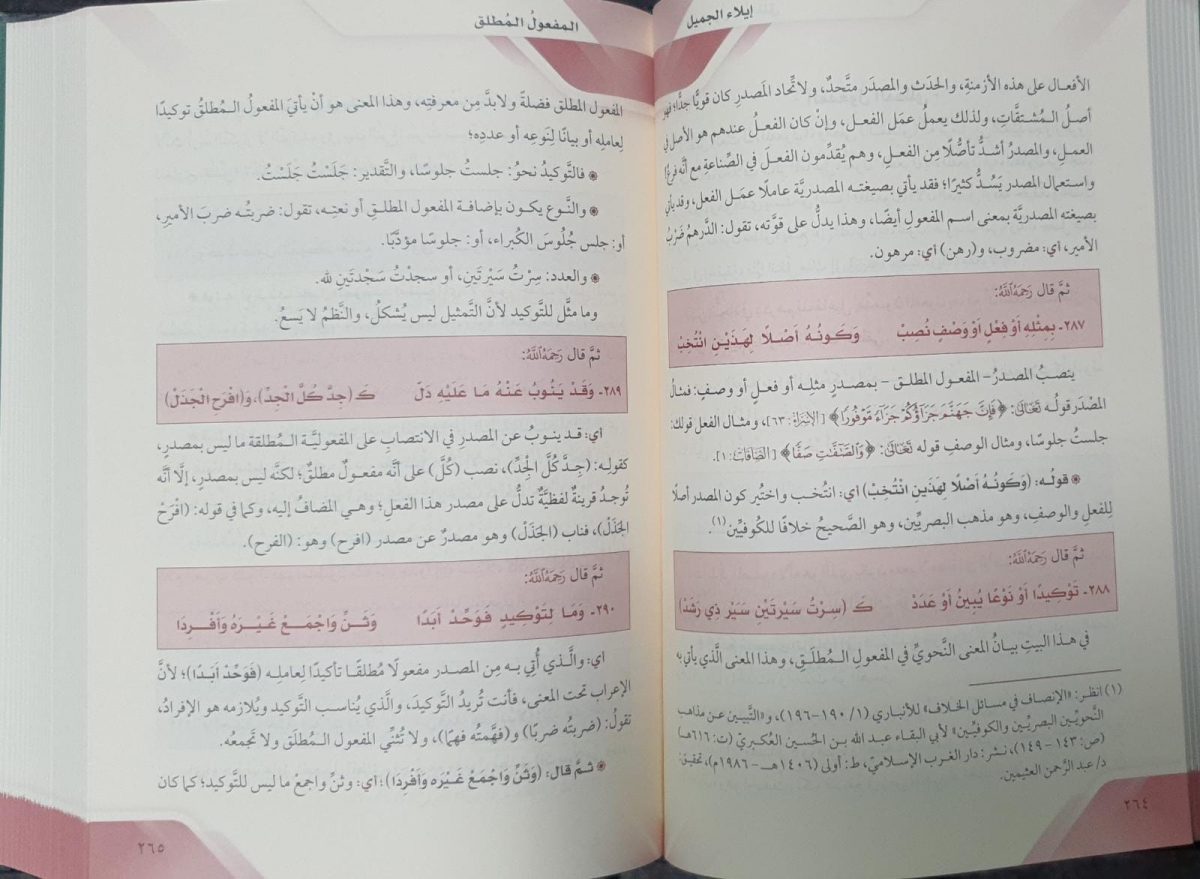 إيلاء الجميل
الأفعال على هذه الأزمنةِ، والحدَث والمصدَر متَّحدٌ، ولاتِّحاد المَصدرِ كان قويًّا جدًّا؛ فهو
أصلُ الـمُشتقَّاتِ، ولذلك يعملُ عمَل الفعل، وإنْ كان الفعلُ عندهم هو الأصل في
العملِ، والمصدَرُ أشدُّ تأصُّلًا مِن الفعلِ، وهم يُقدِّمون الفعلَ في الصِّناعةِ مع أنَّه فرعٌ؛
واستعمال المصدر يَسُدُّ كثيرًا؛ فقد يأتي بصيغته المصدريَّة عاملًا عمَل الفعل، وقد يأتي
بصيغته المصدريَّة بمعنى اسم المفعولِ أيضًا، وهذا يدلُّ على قوَّته، تقول: الدِّرهمُ ضَرْبُ
الأمير، اي: مضروب، و(رهن) اي: مرهون.
ثمَّ قال رَحِمَهُ ٱللَّهُ:
٢٨٧- بِمِثْلِهِ أَوْ فِعْلٍ اوْ وَصْفٍ نُصِبْ وَكَونُهُ أَصْلًا لِهَذَيْنِ انْتُخِبْ
ينصبُ المصدرُ - المفعول المطلق - بمصدرٍ مثلِه أو فعلٍ أو وصفٍ: فمثالُ
المصْدَر قولُه تَعَالَىٰ: ﴿فَإِنَّ جَهَنَّمَ جَزَآؤُكُمْ جَزَآءً مَّوْفُورًا﴾ [الإسراء: ٦٣]، و مثال الفعل قولك:
جلستُ جلوسًا، ومثال الوصفِ قوله تَعَالَىٰ: ﴿وَٱلصَّٰٓفَّٰتِ صَفًّا﴾ [الصافات: ١].
* قولُه: (وَكَونُهُ أَصْلًا لِهَذَينِ انْتُخِبْ) اي: انتُخب واختُير كون المصدر أصلًا
لِلفعلِ والوصفِ، وهو مذهب البصريِّين، وهو الصَّحيحُ خلافًا للكُوفيِّين(١).
ثمَّ قال رَحِمَهُ ٱللَّهُ:
٢٨٨- تَوْكِيدًا أوْ نَوْعًا يُبِينُ أَوْ عَدَدْ كَـ (سِرْتُ سَيْرَتَيْنِ سَيْرَ ذِي رَشَدْ)
في هذا البيتِ بيانُ المعنى النَّحويِّ في المفعولِ الـمُطلَقِ، وهذا المعنى الَّذي يأتي به
(١) انظر: «الإنصاف في مسائل الخلاف» للأنباري (١/ ١٩٠-١٩٦)، و«التَّبيين عن مذاهب
النَّحويِّين البصريِّين والكوفيِّين» لأبي البقاء عبد الله بن الحُسين العُكبريّ (ت: ٦١٦هـ)
(ص: ١٤٣ - ١٤٩)، نشر: دار الغرب الإسلاميّ، ط: أولى (١٤٠٦هـ - ١٩٨٦م)، تحقيق:
د/ عبد الرَّحمن العثيمين.
٢٦٤
المفعولُ المُطلق
المفعول المطلق فضلةً ولابدَّ مِن معرفتِه، وهذا المعنى هو أنْ يأتيَ المفعولُ الـمُطلقُ توكيدًا
لِعاملِه أو بيانًا لِنَوعِه أو عددِه؛
* فالتَّوكيدُ نحوُ: جلستُ جلوسًا، والتَّقدير: جَلَسْتُ جَلَسْتُ.
* والنَّوع يكون بإضافة المفعول المطلقِ أو نعتِه، تقول: ضربتُه ضربَ الأميرِ،
أو: جلس جُلُوسَ الكُبراء، أو: جلوسًا مؤدَّبًا.
* والعدد: سِرْتُ سَيْرَتَينِ، أو سجدْتُ سَجْدتَينِ لله.
وما مثَّل للتَّوكيد لأنَّ التَّمثيل ليس يُشكلُ، والنَّظمُ لا يَسعُ.
ثمَّ قال رَحِمَهُ ٱللَّهُ:
٢٨٩- وَقَدْ يَنُوبُ عَنْهُ مَا عَلَيْهِ دَلّ كَـ (جِدَّ كُلَّ الْجِدِّ)، وَ(افْرَحِ الْجَذَلْ)
اي: قد ينوبُ عن المصدرِ في الانتصابِ على المفعوليَّة الـمُطلقة ما ليس بمصدرٍ،
كقوله: (جِدَّ كُلَّ الْجِدِّ)، نصب (كُلَّ) على أنَّه مفعولٌ مطلقٌ؛ لكنَّه ليس بمصدرٍ، إلَّا أنَّه
تُوجدُ قرينةٌ لفظيَّةٌ تدلُّ على مصدر هذا الفعلِ؛ وهي المضافُ إليه، وكما في قوله: (افْرَحْ
الجَذَلْ)، فناب (الجَذَلْ) وهو مصدرٌ عن مصدر (افرح) وهو: (الفرح).
ثمَّ قال رَحِمَهُ ٱللَّهُ:
٢٩٠- وَمَا لِتَوْكِيدٍ فَوَحِّدْ أَبَدًا وَثَنِّ وَاجْمَعْ غَيْرَهُ وَأَفْرِدَا
اي: والَّذي أُتِي به مِن المصدر مفعولًا مُطلقًا تأكيدًا لِعاملِه (فَوَحِّدْ أَبَدًا)؛ لأنَّ
الإعراب تحت المعنى، فأنت تُريدُ التَّوكيدَ، والَّذي يُناسب التَّوكيد ويُلازمه هو الإفرادُ،
تقولُ: (ضربتُه ضربًا) و(فهَّمتُه فهمًا)، ولا تُثنِّي المفعول المـُطلَق ولا تَجمعُه.
* ثمَّ قال: (وَثَنِّ وَاجْمَعْ غَيْرَه وَأَفْرِدَا)؛ اي: وثنِّ واجمع ما ليس للتَّوكيد؛ كما كان
٢٦٥